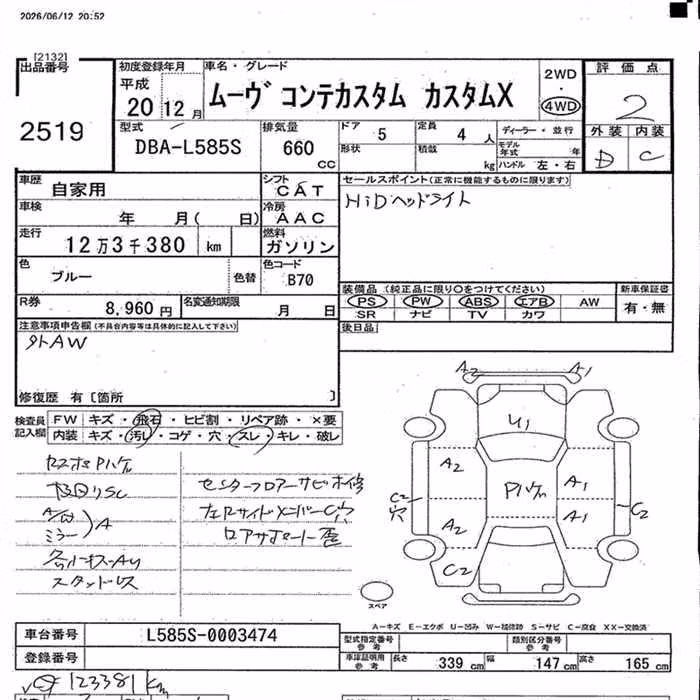 2026/06/12 20:52
[2132]
出品番号
2519
初度登録年月
平成
20 12 月
車名・グレード
ムーヴ コンテカスタム カスタムX
2WD
・
4WD
評価点
2
外装 内装
D C
型式
DBA-L585S
排気量
660 CC
ドア 5
形状
定員 4 人
積載 kg
ディーラー・並行
モデル年式 年
ハンドル 左・右
車歴
自家用
シフト
CAT
車検
年 月( 日)
冷房
AAC
走行
12万3千380 km
燃料
ガソリン
色
ブルー
色替
色コード
B70
R券
8,960 円
名変通知期限
月 日
セールスポイント(正常に機能するものに限ります)
HiDヘッドライト
装備品 (純正品に限り○をつけてください)
新車保証書
PS PW ABS エアB AW
SR ナビ TV カワ
有・無
後日品
注意事項申告欄(不具合内容等は具体的に記入して下さい)
外AW
修復歴 有〔箇所 〕
検査員記入欄
FW キズ・飛石・ヒビ割・リペア跡・×要
内装 キズ・汚レ・コゲ・穴・スレ・キレ・破レ
ミラー A
スタッドレス
センターフロアーサビ補修
左右サイドメンバーC穴
ロアサポート歪
A2 A1
U1
A2
Pハゲ
A1
C2
穴
A2
A1
C2
C2
スペア
A－キズ E－エクボ U－凹み W－補修跡 S－サビ C－腐食 XX－交換済
車台番号
L585S-0003474
登録番号
型式指定番号
参考
類別区分番号
参考
車庫証明用
参考
長さ 339 cm 幅 147 cm 高さ 165 cm
123381 Km